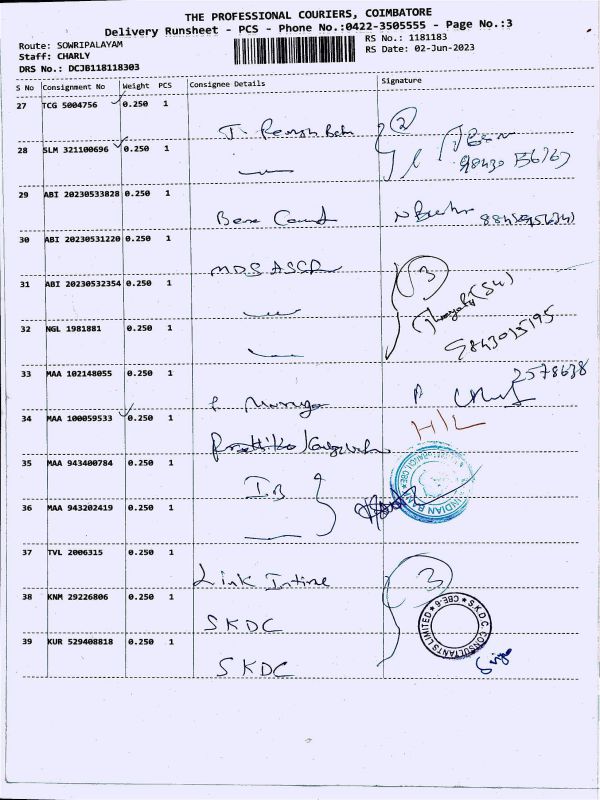 THE PROFESSIONAL COURIERS, COIMBATORE
Delivery Runsheet - PCS - Phone No.:0422-3505555 - Page No.:3
Route: SOWRIPALAYAM
RS No.: 1181183
Staff: CHARLY
RS Date: 02-Jun-2023
DRS No.: DCJB118118303
S No Consignment No Weight PCS Consignee Details Signature
27 TCG 5004756 0.250 1
2
28 SLM 321100696 0.250 1
29 ABI 20230533828 0.250 1
30 ABI 20230531220 0.250 1
MDS ASCR
31 ABI 20230532354 0.250 1
3
32 NGL 1981881 0.250 1
33 MAA 102148055 0.250 1
2578638
34 MAA 100059533 0.250 1
H/L
35 MAA 943400784 0.250 1
IB
INDIAN BANK
36 MAA 943202419 0.250 1
37 TVL 2006315 0.250 1
Link Intime
3
38 KNM 29226806 0.250 1
SKDC
S.K.D.C. CONSULTANTS LIMITED * CBE-6 *
39 KUR 529408818 0.250 1
SKDC